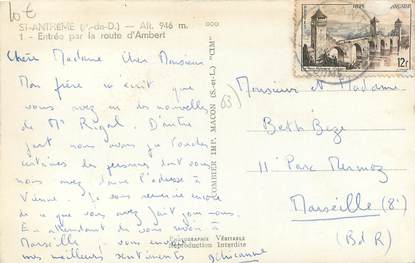 10€
ST-ANTHÈME (P.-de-D.) — Alt. 946 m.
1. - Entrée par la route d'Ambert
Chère Madame Cher Monsieur
Mon frère m'écrit que
vous avez eu des nouvelles
de Mr Rigal. D'autre
part nous avons pu
certaines des personnes dont vous
nous avez donné l'adresse à
Vienne. Je vous remercie encore
de ce que vous avez fait pour nous.
En attendant de vous revoir à
Marseille je vous envoie
mes meilleurs sentiments
COMBIER IMP. MACON (S.-et-L.) "CIM"
PHOTOGRAPHIE VÉRITABLE
Reproduction Interdite
12F
Monsieur et Madame
Beth Beze
11 Parc Mermoz
Marseille (8e)
(B d R)